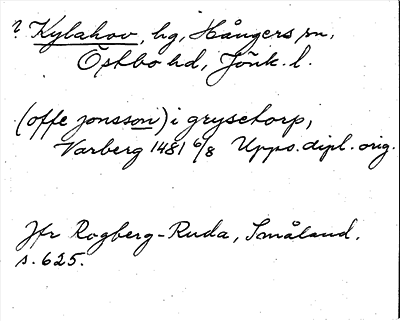 ? Kylahov, hg, Hångers sn,
Östbo hd, Jönk. l.
(offe jonsson) i grysetorp,
Varberg 1481 6/8 Upps. dipl. orig.
Jfr Rogberg-Ruda, Småland.
s. 625.